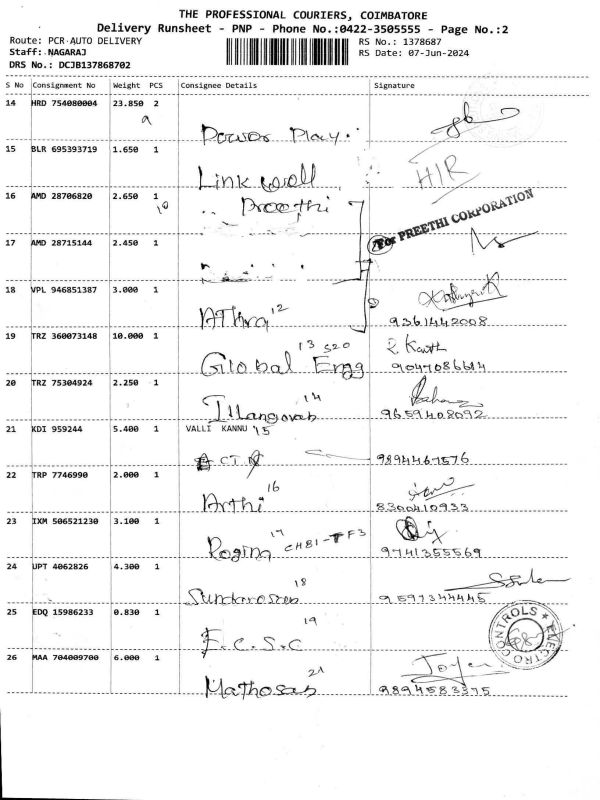 THE PROFESSIONAL COURIERS, COIMBATORE
Delivery Runsheet - PNP - Phone No.:0422-3505555 - Page No.:2
Route: PCR AUTO DELIVERY
Staff: NAGARAJ
DRS No.: DCJB137868702
RS No.: 1378687
RS Date: 07-Jun-2024
S No Consignment No Weight PCS Consignee Details Signature
14 HRD 754080004 23.850 2
Power Play
15 BLR 695393719 1.650 1
Link well H/R
16 AMD 28706820 2.650 1
10 Preethi
For PREETHI CORPORATION
17 AMD 28715144 2.450 1
18 VPL 946851387 3.000 1
12
9361442008
19 TRZ 360073148 10.000 1
13 520
Global Engg 9047086614
20 TRZ 75304924 2.250 1
14
9659408092
21 KDI 959244 5.400 1 VALLI KANNU 15
9894467576
22 TRP 7746990 2.000 1
16
Arthi 8300410933
23 IXM 506521230 3.100 1
17
9741355569
24 UPT 4062826 4.300 1
18
9597344445
25 EDQ 15986233 0.830 1
19
E.C.S.C
ELECTRO CONTROLS
26 MAA 704009700 6.000 1
21
9894583375